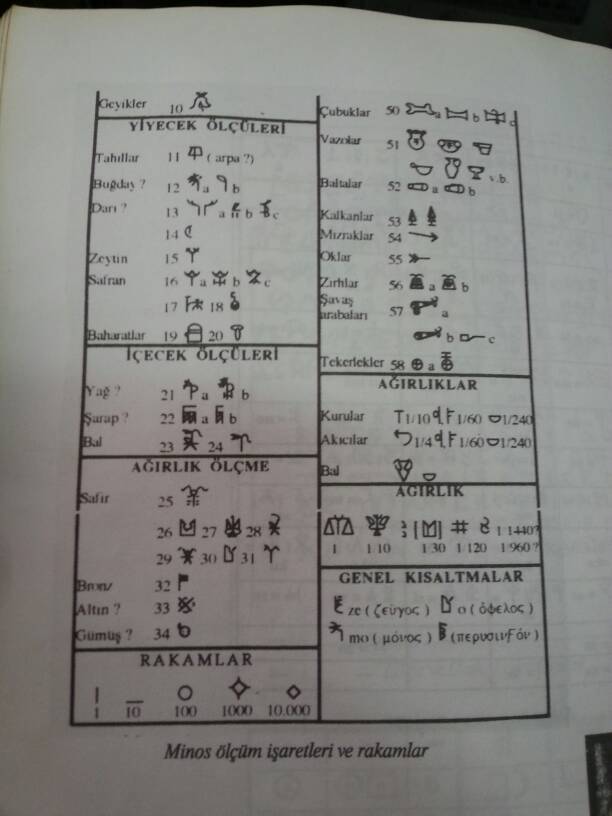 Geyikler 10
YİYECEK ÖLÇÜLERİ
Tahıllar 11 ( arpa ?)
Buğday ? 12 a b
Darı ? 13 a b c
14
Zeytin 15
Safran 16 a b c
17 18
Baharatlar 19 20
İÇECEK ÖLÇÜLERİ
Yağ ? 21 a b
Şarap ? 22 a b
Bal 23 24
AĞIRLIK ÖLÇME
Safir 25
26 27 28
29 30 31
Bronz 32
Altın ? 33
Gümüş ? 34
RAKAMLAR
1 10 100 1000 10.000
Çubuklar 50 a b c
Vazolar 51
v.b.
Baltalar 52 a b
Kalkanlar 53
Mızraklar 54
Oklar 55
Zırhlar 56 a b
Savaş
arabaları 57 a
b c
Tekerlekler 58 a b
AĞIRLIKLAR
Kurular 1/10 1/60 1/240
Akıcılar 1/4 1/60 1/240
Bal
AĞIRLIK
1 1440?
1 1/10 1/30 1/120 1/960 ?
GENEL KISALTMALAR
ze ( ζεύγος ) o ( όφελος )
mo ( μόνος ) (περυσινϜόν)
Minos ölçüm işaretleri ve rakamlar